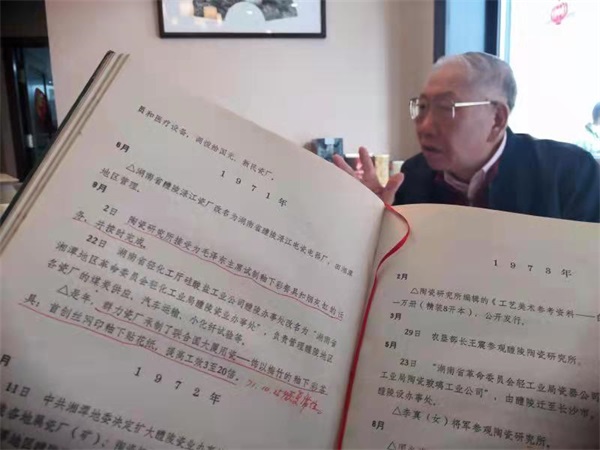 具和医疗设备，
1971年
8月
△湖南省醴陵渌江瓷厂改名为湖南省醴陵渌江电瓷电器厂，
地区管理。
9月
2日 陶瓷研究所接受为毛泽东主席试制釉下彩餐具和烟灰缸的任
务，并按时完成。
22日 湖南省轻化工厅硅酸盐工业公司醴陵办事处改名为“湖南省
湘潭地区革命委员会轻化工业局醴陵瓷业办事处”，负责管理醴陵地区
各瓷厂的煤炭供应、汽车运输、小化纤试验等。
△是年，群力瓷厂承制了联合国大厦用瓷——饰以梅竹的釉下彩茶
具；首创丝网印釉下贴花纸，提高工效3至20倍。
1972年
11日 中共湘潭地委决定扩大醴陵瓷业办事
1973年
2月
△陶瓷研究所编辑的《工艺美术参考资料——
一万册（精装8开本），公开发行。
29日 农垦部长王震参观醴陵陶瓷研究所。
23日 “湖南省革命委员会轻工业局瓷器公司
工业局陶瓷玻璃工业公司”，由醴陵迁至长沙市，
醴陵设办事处。
△李真（女）将军参观陶瓷研究所。
8月